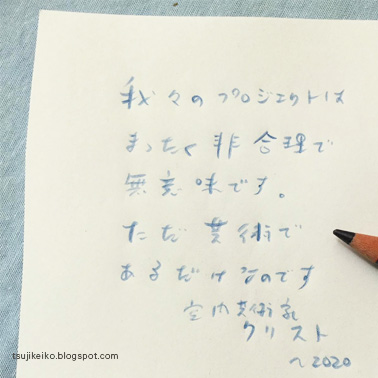 我々のプロジェクトは
まったく非合理で
無意味です。
ただ芸術で
あるだけなのです
クリスト
~2020
tsujikeiko.blogspot.com